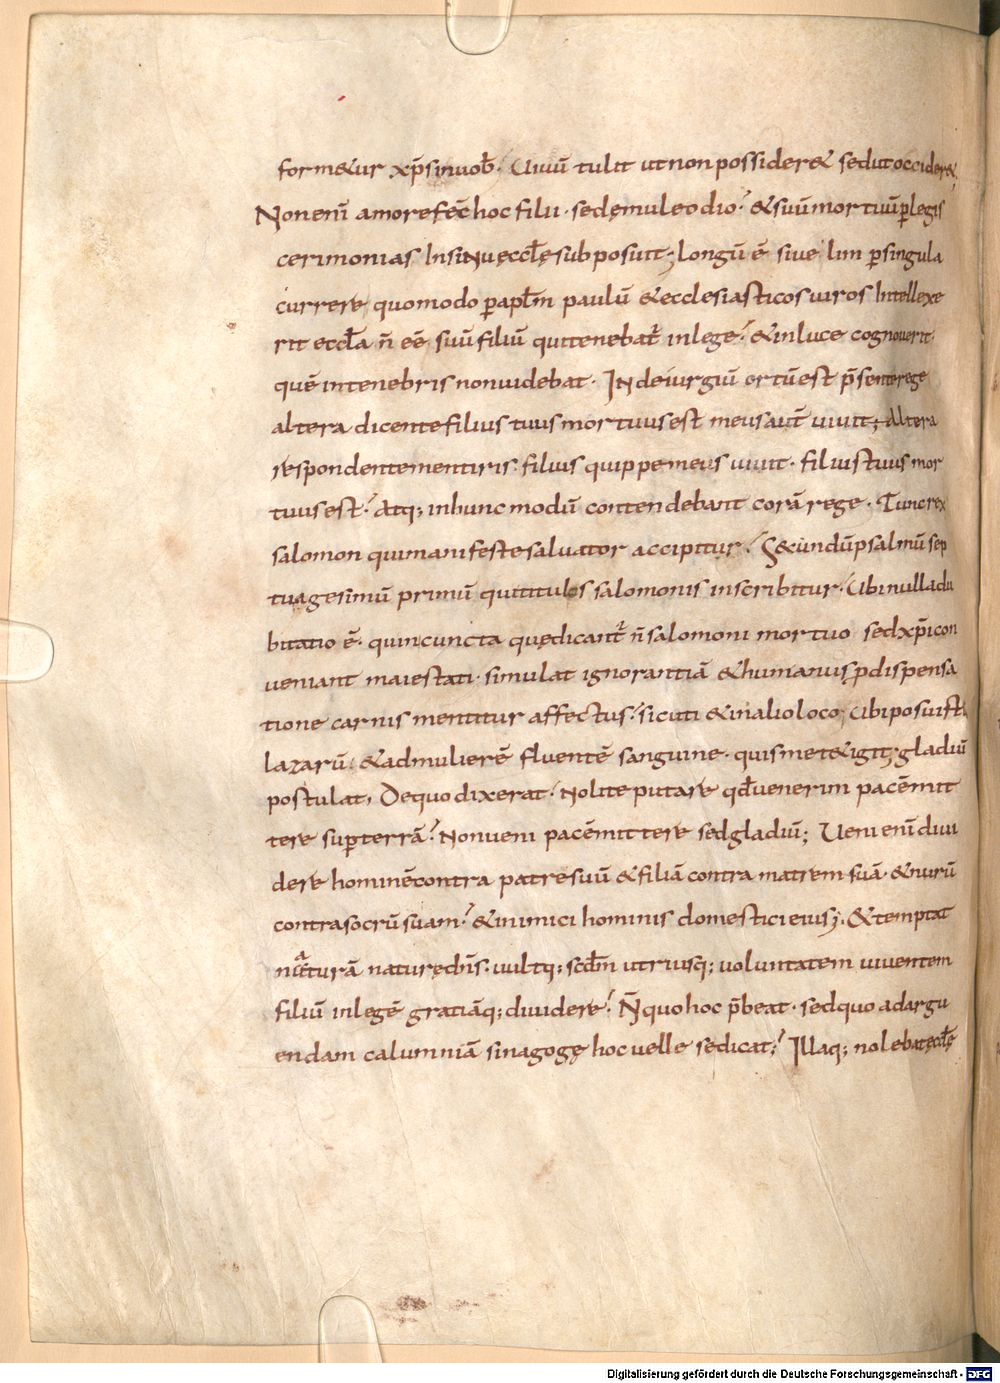 form&ur xp̄s inuob̄. Uiuū tulit ut non possider& sed ut occider&.
Non enī amore fec̄ hoc filii. sed ęmulę odio. & suū mortuū ꝑ legis
cerimonias In sinu ęccl̄ę subposuit; longū ē sive lim ꝑ singula
currere quomodo ꝑ apl̄m paulū & ecclesiasticos uiros Intellexe
rit eccl̄a n̄ eē suū filiū qui tenebat̄ in lege. & in luce cognouerit.
quē in tenebris non uidebat. Inde iurgiū ortū est p̄sente rege
altera dicente filius tuus mortuus est meus aut̄ uiuit; Altera
respondente mentiris. filius quippe meus uiuit. filius tuus mor
tuus est. Atq; in hunc modū contendebant corā rege. Tunc rex
salomon qui manifeste saluator accipitur. Secundū psalmū sep
tuagesimū primū qui titulos salomonis inscribitur. Ubi nulla du
bitatio ē. quin cuncta quę dicant̄ n̄ salomoni mortuo sed xp̄i con
ueniant maiestati. simulat ignorantiā & humanus ꝓ dispensa
tione carnis mentitur affectus. sicuti & in alio loco; Ubi posuisti
lazarū. & ad mulierē fluentē sanguine. quis me tetigit; gladiū
postulat, De quo dixerat. Nolite putare qd̄ venerim pacē mit
tere suꝑ terrā. Non veni pacē mittere sed gladiū; Ueni enī diui
dere hominē contra patrē suū & filiā contra matrem suā. & nurū
contra socrū suam. & inimici hominis domestici eius; & temptat
naturā naturę dn̄s. uultq; scd̄m utriusq; voluntatem uiuentem
filiū in legē gratiāq; diuidere. N̄ quo hoc p̄beat. sed quo ad argu
endam calumniā sinagogę hoc uelle se dicat; Illaq; nolebat ęccl̄ę
Digitalisierung gefördert durch die Deutsche Forschungsgemeinschaft - DFG